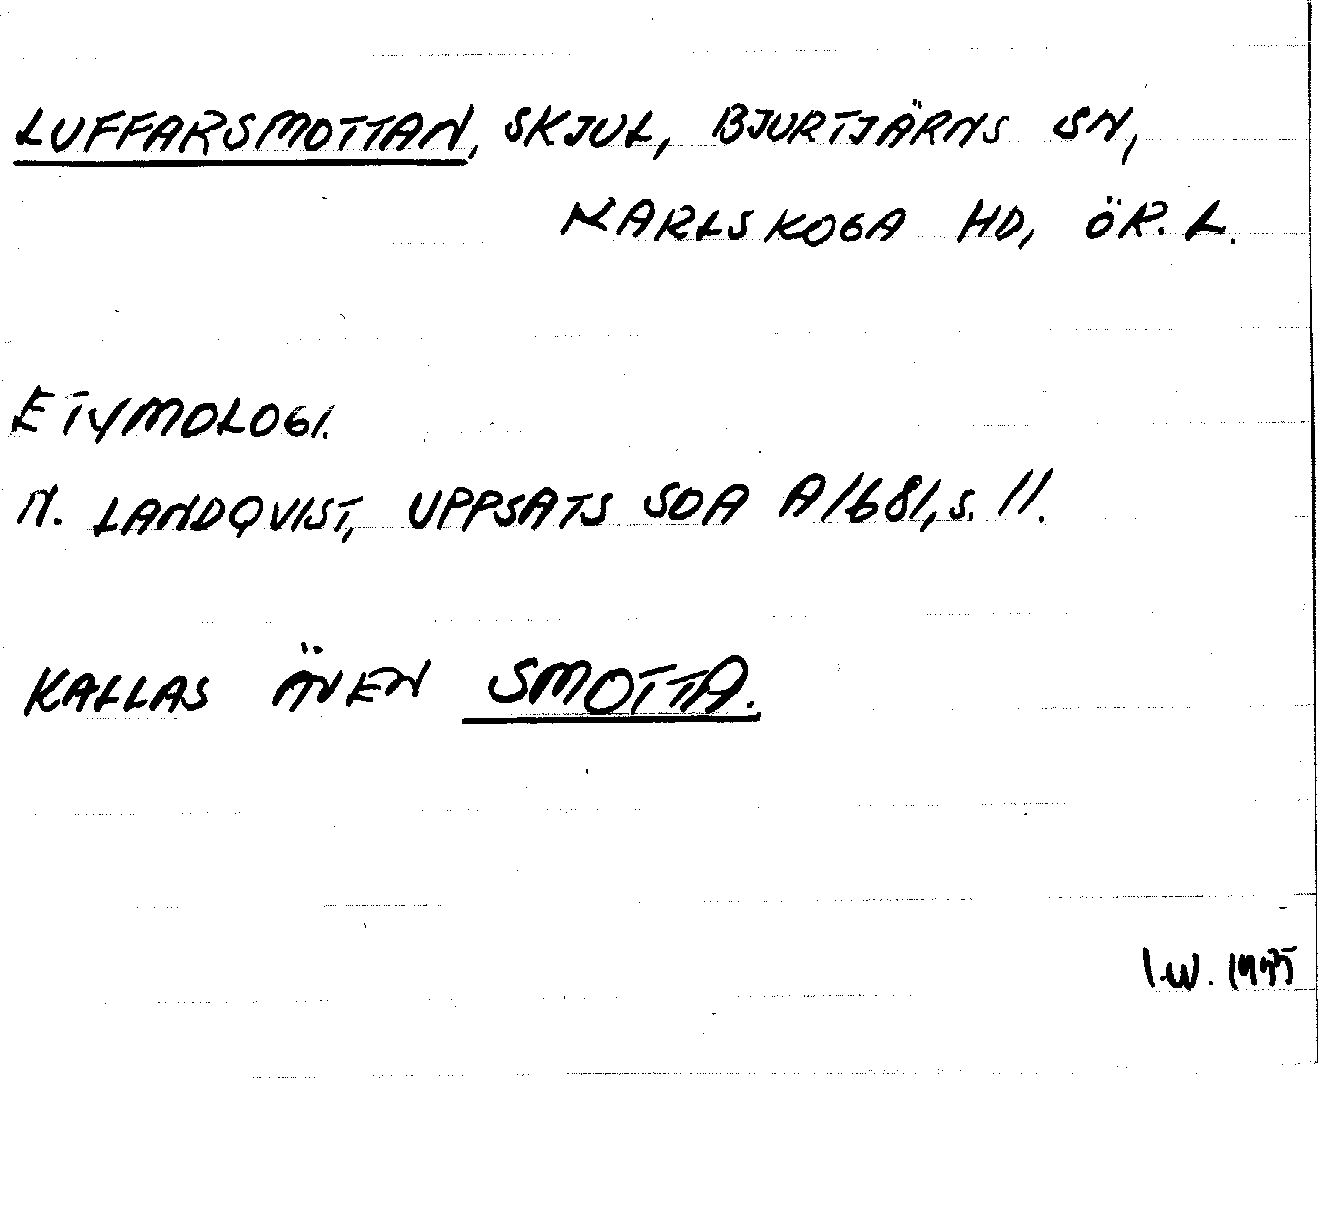 LUFFARSMOTTAN, SKJUL, BJURTJÄRNS SN,
KARLSKOGA HD, ÖR. L.
ETYMOLOGI.
N. LANDQVIST, UPPSATS SOA A1681, S. 11.
KALLAS ÄVEN SMOTTA.
I.W. 1975